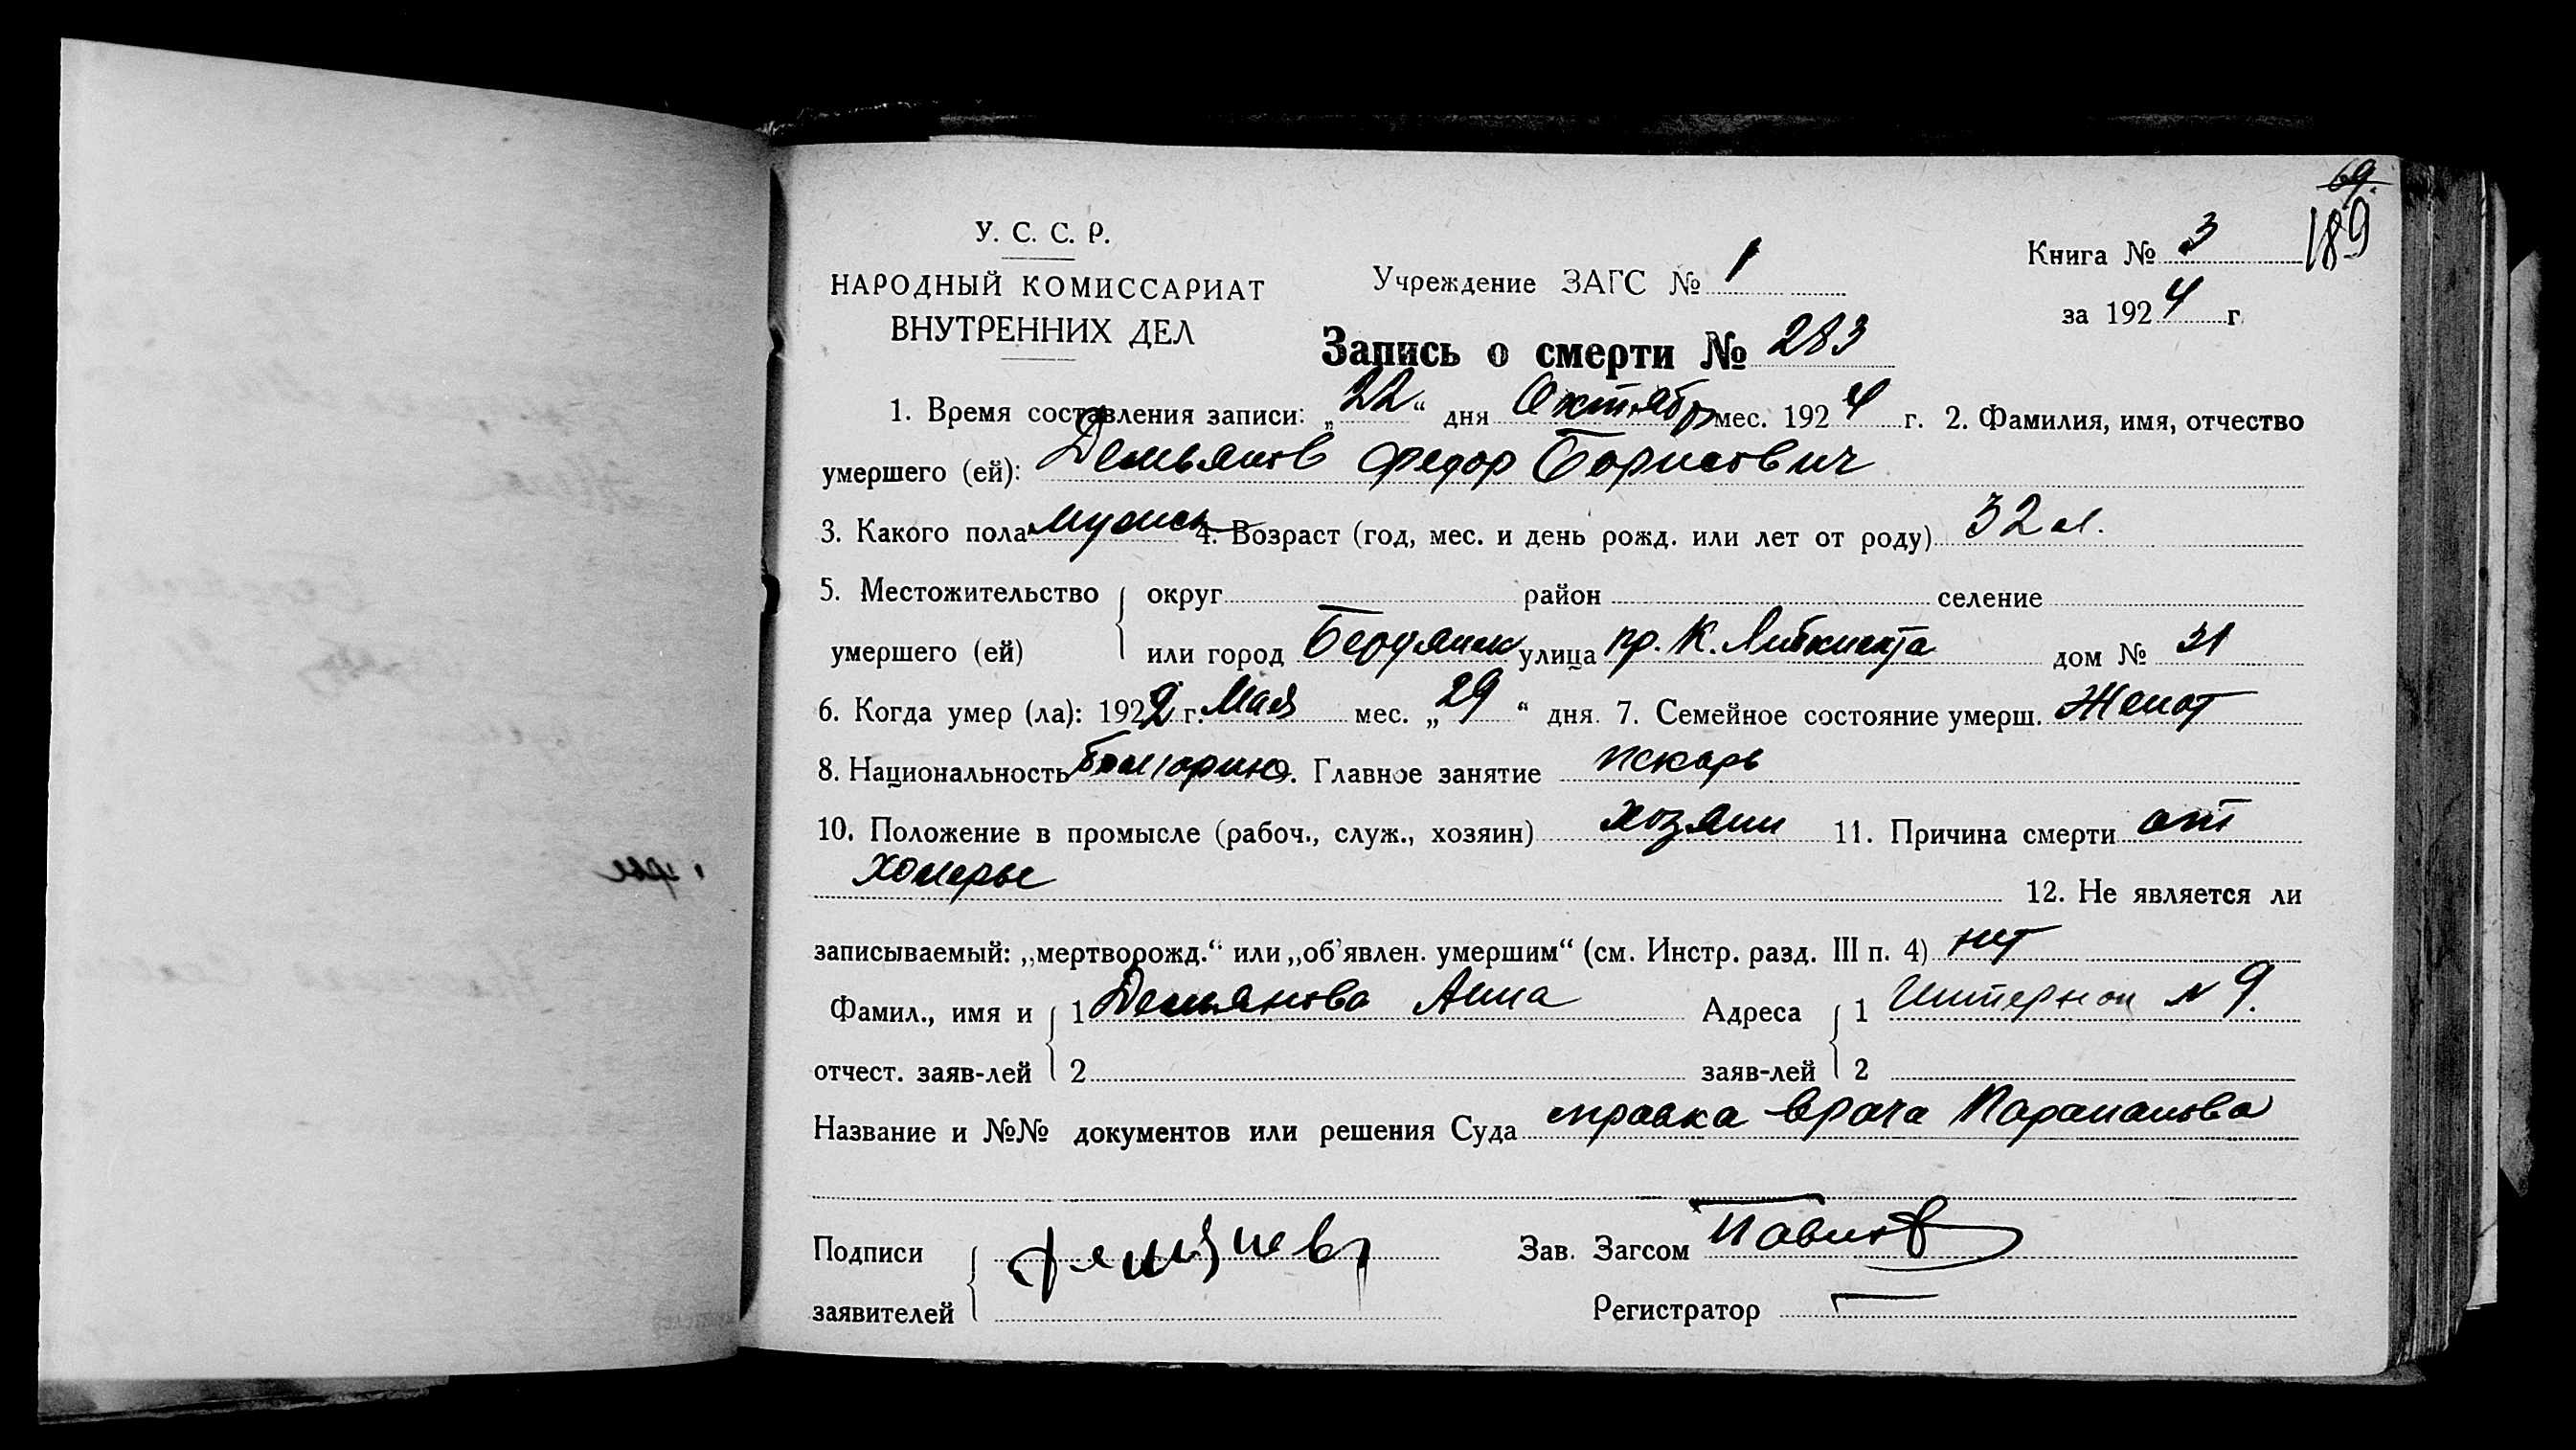 69.
У. С. С. Р.
Книга № 3 189
НАРОДНЫЙ КОМИССАРИАТ Учреждение ЗАГС № 1
за 1924 г.
ВНУТРЕННИХ ДЕЛ
Запись о смерти № 283
1. Время составления записи: „22“ дня Октябр мес. 1924 г. 2. Фамилия, имя, отчество
умершего (ей): Демьянов Федор Борисович
3. Какого пола мужск 4. Возраст (год, мес. и день рожд. или лет от роду) 32 л.
5. Местожительство округ район селение
умершего (ей) или город Бердянск улица пр. К. Либкнехта дом № 31
6. Когда умер (ла): 1922 г. Мая мес. „29“ дня. 7. Семейное состояние умерш. Женат
8. Национальность 9. Главное занятие пекарь
10. Положение в промысле (рабоч., служ., хозяин) хозяин 11. Причина смерти от
холеры
12. Не является ли
записываемый: „мертворожд.“ или „об’явлен. умершим“ (см. Инстр. разд. III п. 4) нет
Фамил., имя и 1 Демьянова Анна Адреса 1 Интернац № 9.
отчест. заяв-лей 2 заяв-лей 2
Название и №№ документов или решения Суда справка врача
Подписи Зав. Загсом
заявителей Регистратор